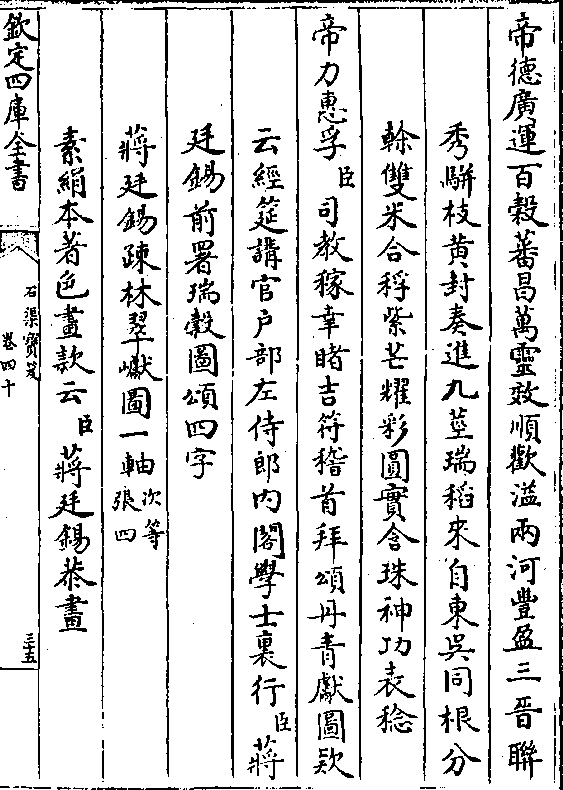 帝德廣運百穀蕃昌萬靈效順歡溢兩河豐盈三晉聯
秀駢枝黄封奏進九莖瑞稻來自東吳同根分
榦雙米合稃紫芒耀彩圓實含珠神功表稔
帝力惠孚臣司教稼幸睹吉符稽首拜頌丹青獻圖欵
云經筵講官户部左侍郎内閣學士裏行臣蔣
廷錫前署瑞穀圖頌四字
蔣廷錫疎林翠巘圖一軸次等張四
素絹本著色畫款云臣蔣廷錫恭畫
欽定四庫全書
石渠寶笈
卷四十
三五